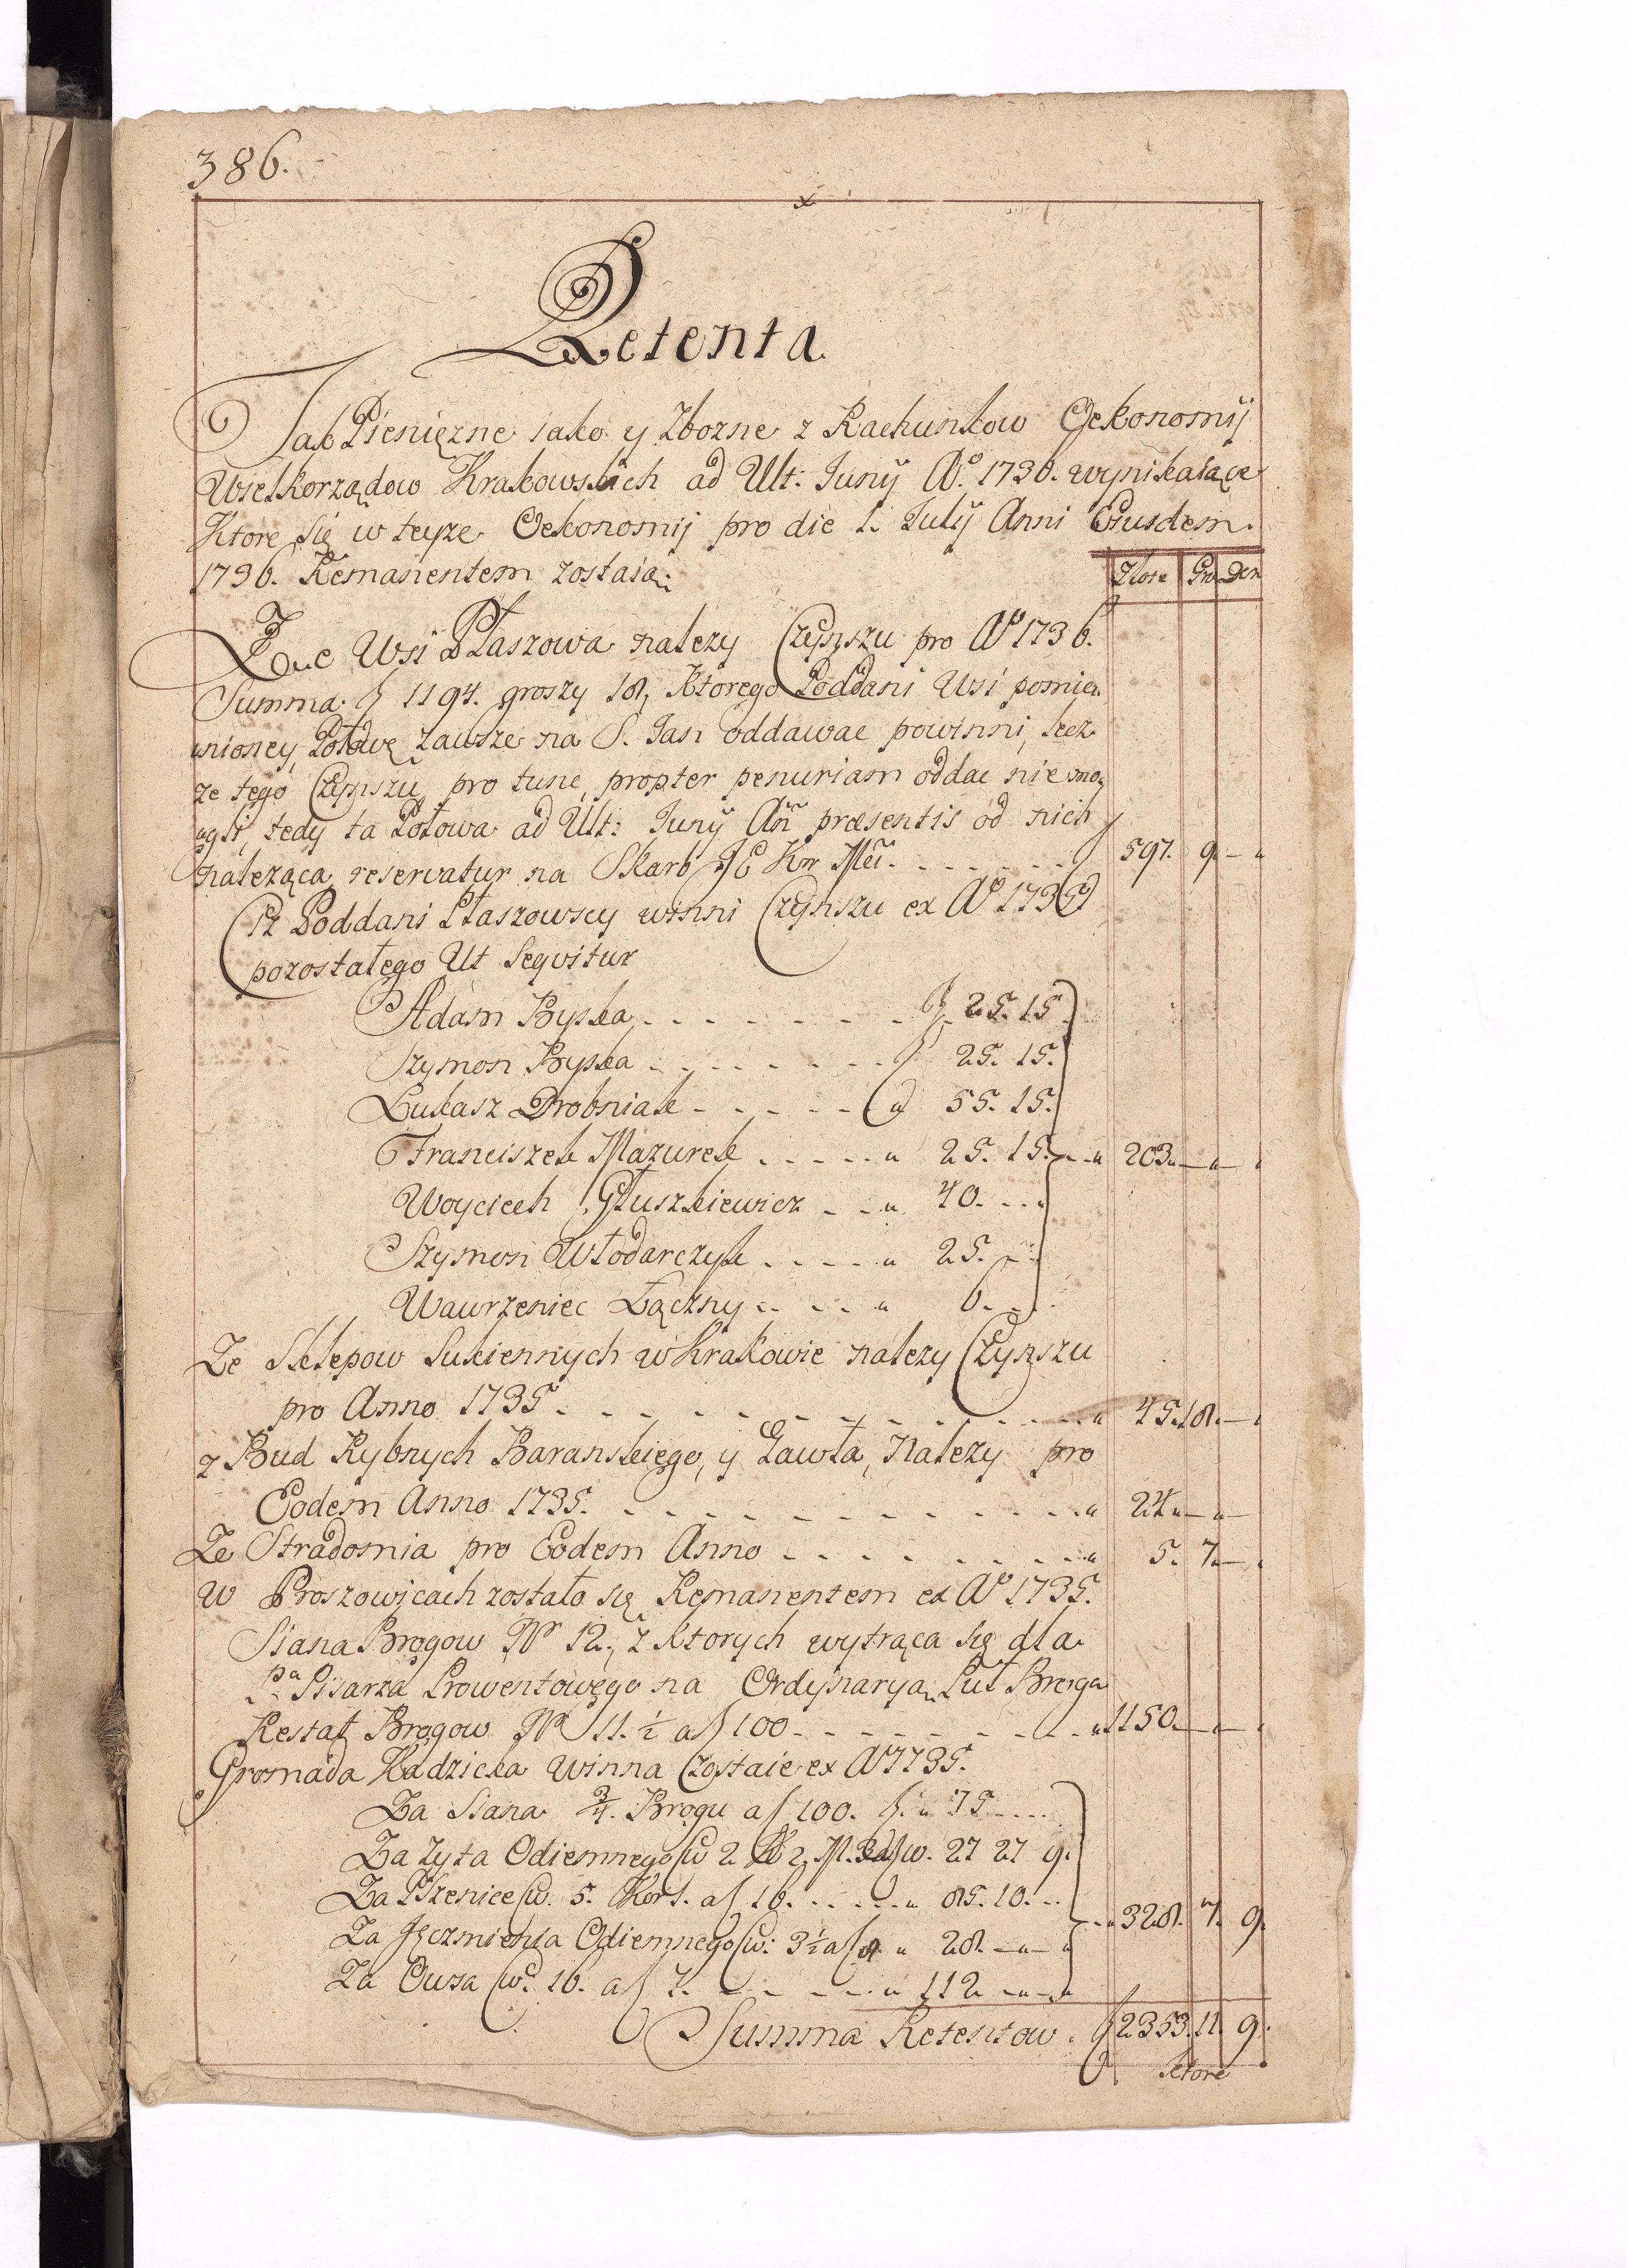 386.
Retenta
Jak Pieniężne iako y Zbozne z Rachunkow Oekonomij
Wielkorządow Krakowskich ad Ult: Junÿ Aº 1736. wynikaiące
Ktore się w teyze Oekonomij pro die 1. Julÿ Anni Eiusdem.
1736. Remanentem zostaią.
Złote Gro Den
Ze Wsi Płaszowa nalezy Czynszu pro Aº 1736.
Summa f 1194. groszy 18, Ktorego Poddani Wsi pomie„
„nioney, Połowę zawsze na S. Jan oddawac powinni, lecz
ze tego Czynszu, pro tunc, propter penuriam oddac nie mo„
„gli, tedy ta Połowa ad Ult: Junÿ Añ præsentis od nich
naleząca, reservatur na Skarb JE Kr Mci. - - - - - - f 597. 9. - „
Ciz Poddani Płaszowscy winni Czynszu ex Aº 1735
pozostałego Ut Sequitur
Adam Byska - - - - - - - f 25. 15
Szymon Byska - - - - - - - 25. 15.
Łukasz Drobniak - - - - - „ 55. 15.
Franciszek Mazurek - - - - „ 25. 15. - „ 203. - „ -
Woyciech Głuszkiewicz - - „ 40. - - -
Szymon Włodarczyk - - - - „ 25. - -
Wawrzeniec Łączny - - - „ 6. - -
Ze Sklepow Sukiennych w Krakowie nalezy Czynszu
pro Anno 1735 - - - - - - - - - - - - „ 45. 18. -
z Bud Rybnych Baranskiego, y Gawła, Nalezy pro
Eodem Anno 1735. - - - - - - - - - - - „ 24 „ - „ -
Ze Stradomia pro Eodem Anno - - - - - - - - „ 5. 7. -
W Proszowicach zostało się Remanentem ex Aº 1735.
Siana Brogow Nº 12., z Ktorych wytrąca się dla
Pª Pisarza Prowentowego na Ordynaryą Puł Broga
Restat Brogow Nº 11. ½ a f 100 - - - - - - - - „ 1150. - „ -
Gromada Kadzicka Winna Zostaie ex Aº 1735.
Za Siana ¾. Brogu a f 100. f „ 75 - - -
Za Zyta Odiemnego 2 27 27 9.
Za Pszenice 5. Kor 1. a f 16. - - - - „ 85. 10. -
Za Jęczmienia Odiemnego 3 ½ a f 8. „ 28. - „ - „ - „ 328. 7. 9.
Za Owsa 16. a f 7. - - - - „ 112 - „ - „
Summa Retentow f 2353. 11. 9.
Ktore